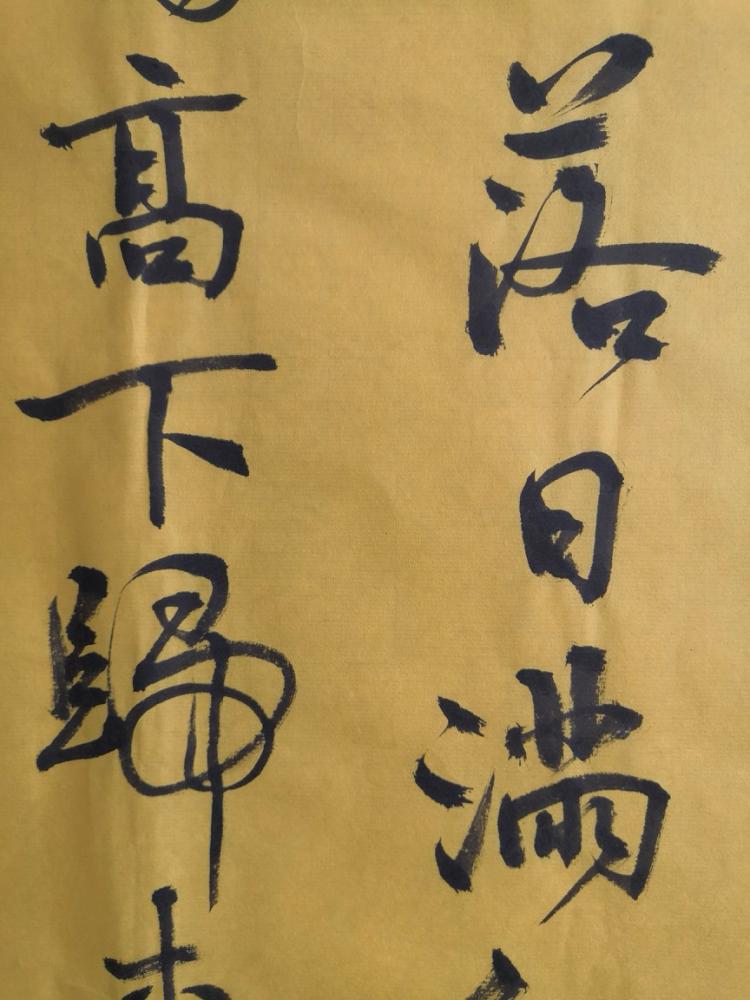 落日滿
高下歸